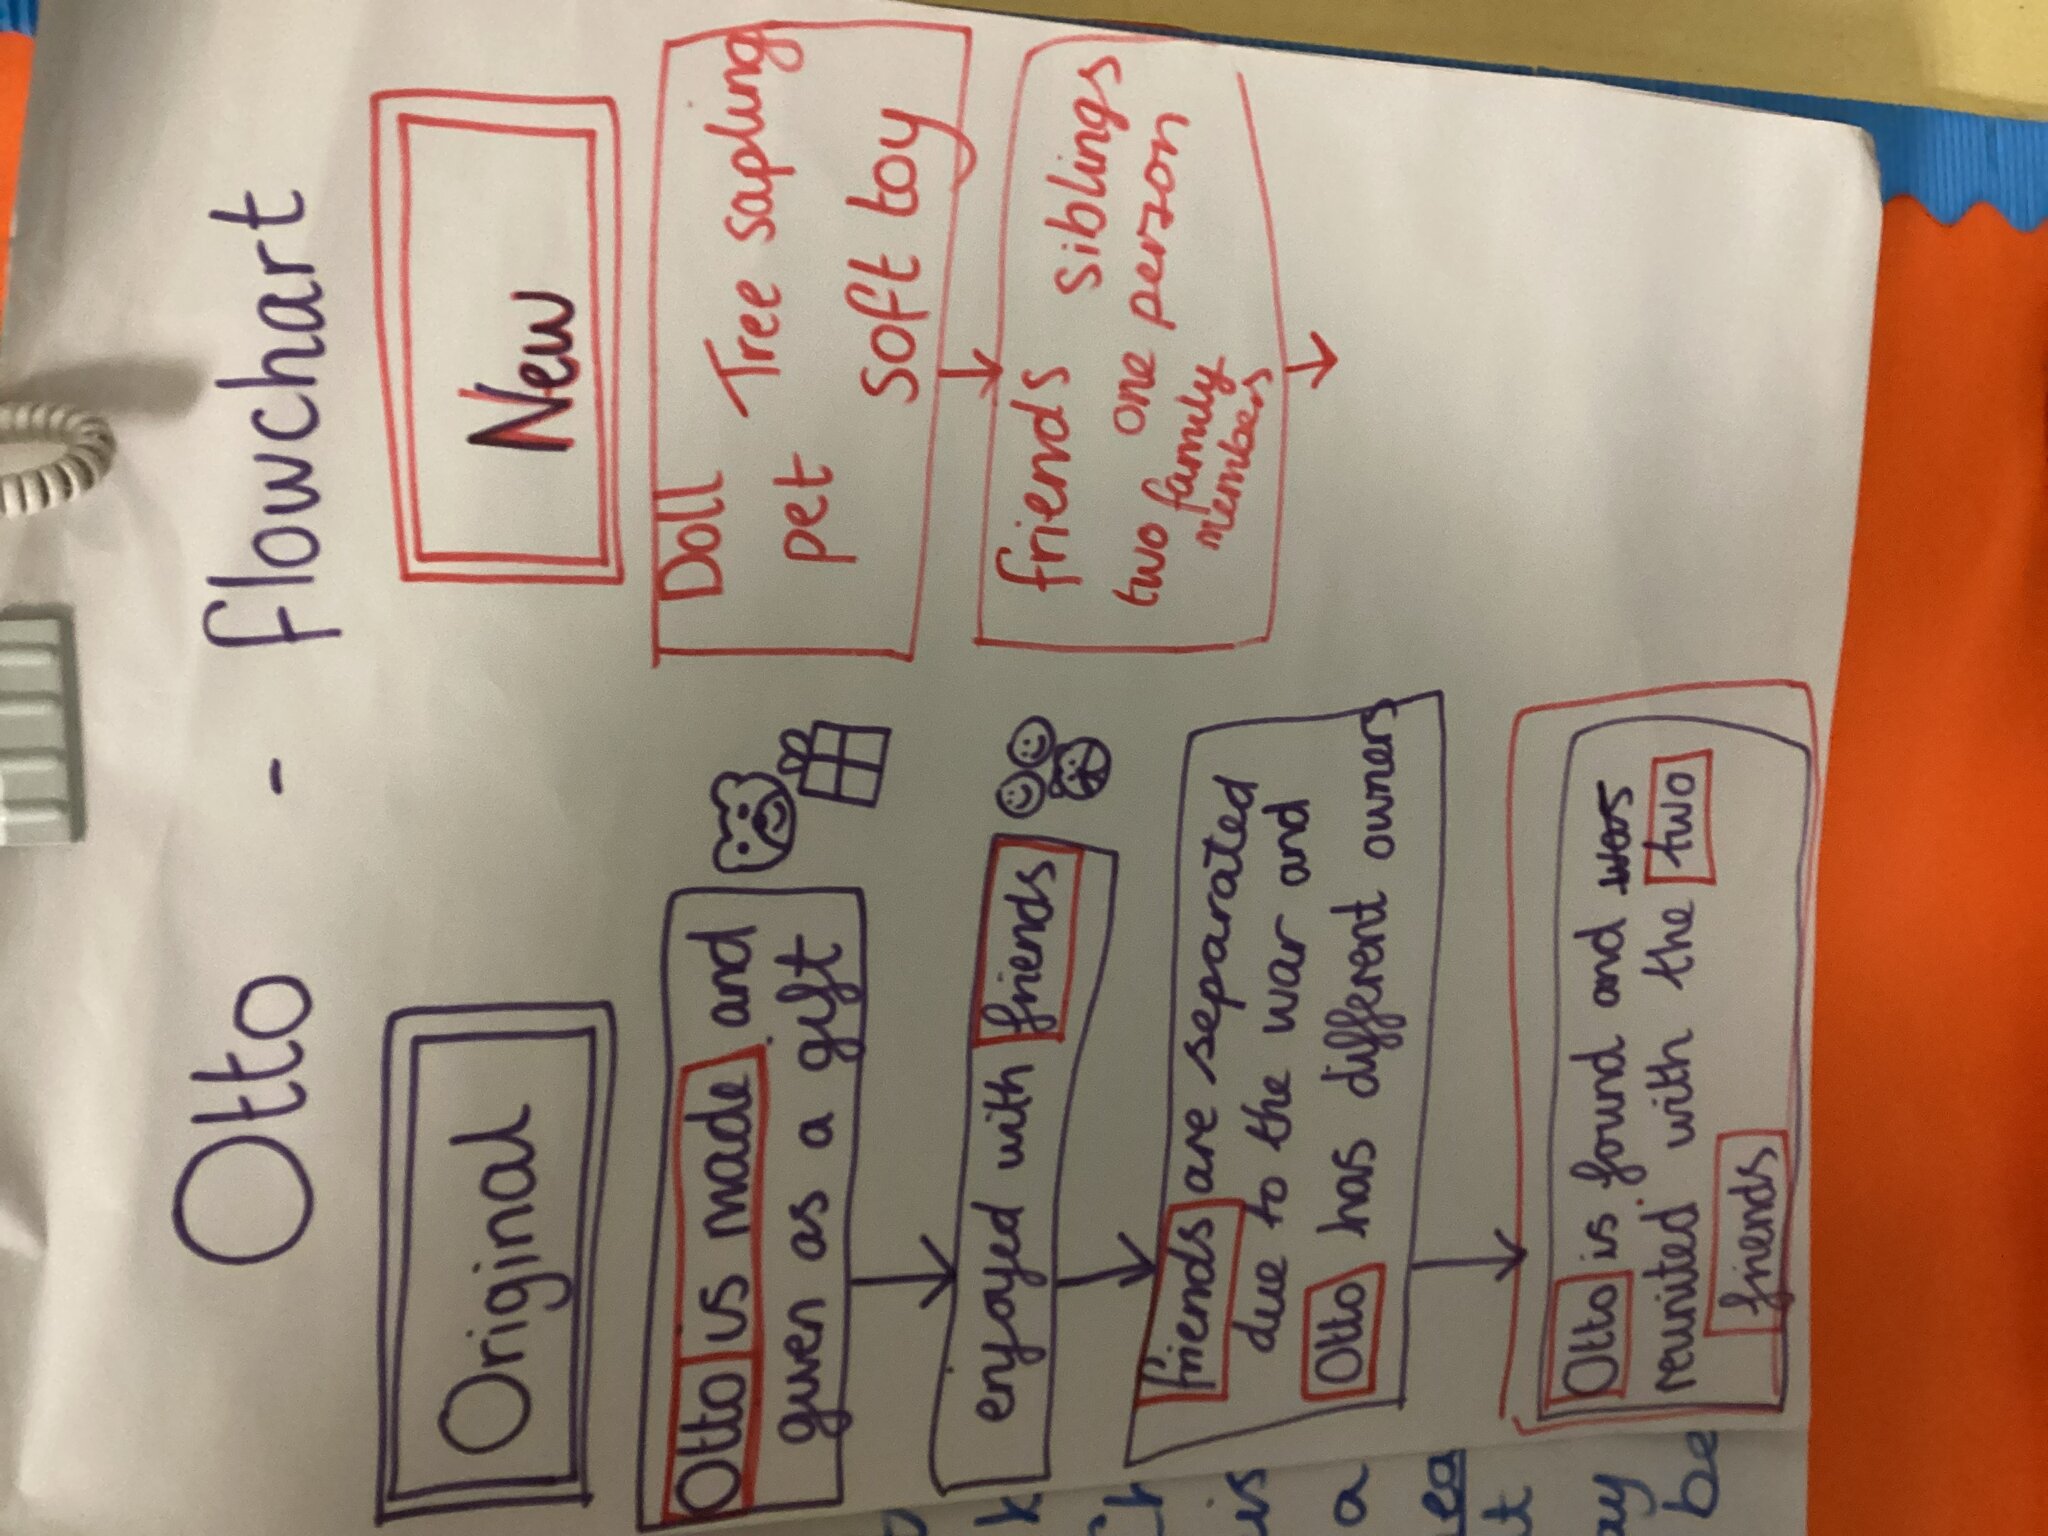 Otto - flowchart
Original
Otto is made and
given as a gift
enjoyed with friends
friends are separated
due to the war and
Otto has different owners
Otto is found and was
reunited with the two
friends
New
Doll Tree sapling
pet soft toy
friends siblings
one person
two family
members
is
a
ea
t
ay
be